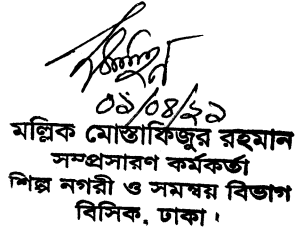 ০১/০৪/২১
মল্লিক মোস্তাফিজুর রহমান
সম্প্রসারণ কর্মকর্তা
শিল্প নগরী ও সমন্বয় বিভাগ
বিসিক, ঢাকা।